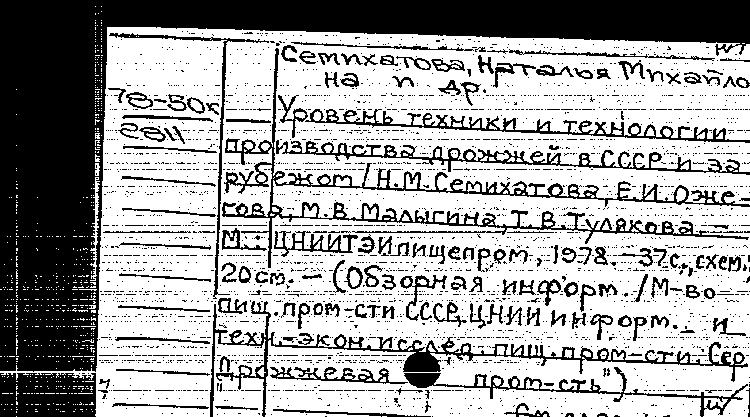 Семихатова, Наталья Михайло
на и др.
78-50к
2811
Уровень техники и технологии
производства дрожжей в СССР и за
рубежом / Н.М. Семихатова, Е.И. Оже-
гова, М.В. Малыгина, Т.В. Тулякова. —
М.: ЦНИИТЭИпищепром, 1978. — 37с., схем.;
20см. — (Обзорная информ. / М-во
пищ. пром-сти СССР, ЦНИИ информ. и
техн.-экон. исслед. пищ. пром-сти. Сер.
"Дрожжевая пром-сть").